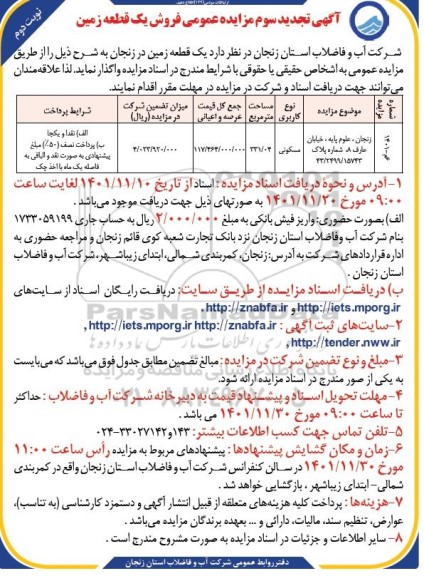 نوبت دوم
آگهی تجدید سوم مزایده عمومی فروش یک قطعه زمین
شرکت آب و فاضلاب استان زنجان در نظر دارد یک قطعه زمین در زنجان به شرح ذیل را از طریق
مزایده عمومی به اشخاص حقیقی یا حقوقی با شرایط مندرج در اسناد مزایده واگذار نماید. لذا علاقه‌مندان
می‌توانند جهت دریافت اسناد و شرکت در مزایده در مهلت مقرر اقدام نمایند.
شماره مزایده
موضوع مزایده
نوع کاربری
مساحت مترمربع
جمع کل قیمت عرصه و اعیانی
میزان تضمین شرکت در مزایده (ریال)
شرایط پرداخت
زنجان ، علوم پایه ، خیابان
عارف ۸، شماره پلاک
۴۳/۲۴۹۹/۱۵۷۴۳
مسکونی
۳۳۱/۰۴
۱۱۷/۴۶۴/۰۰۰/۰۰۰
۴/۰۲۳/۹۲۰/۰۰۰
الف) نقد و یکجا
ب) پرداخت نصف (۵۰٪) مبلغ
پیشنهادی به صورت نقد و الباقی به
فاصله یک ماه با اخذ چک
۱- آدرس و نحوه دریافت اسناد مزایده : اسناد از تاریخ ۱۴۰۱/۱۱/۱۰ لغایت ساعت
۰۹:۰۰ مورخ ۱۴۰۱/۱۱/۲۰ به صورتهای ذیل جهت دریافت موجود می‌باشد .
الف) بصورت حضوری: واریز فیش بانکی به مبلغ ۲/۰۰۰/۰۰۰ ریال به حساب جاری ۱۷۳۳۰۵۹۱۹۹
بنام شرکت آب و فاضلاب استان زنجان نزد بانک تجارت شعبه کوی قائم زنجان و مراجعه حضوری به
اداره قراردادهای شرکت به آدرس: زنجان، کمربندی شمالی، ابتدای زیباشهر، شرکت آب و فاضلاب
استان زنجان .
ب) دریافت اسناد مزایده از طریق سایت: دریافت رایگان اسناد از سایت‌های
http://iets.mporg.ir و http://znabfa.ir .
۲-سایت‌های ثبت آگهی : http://iets.mporg.ir http://znabfa.ir ,
http://tender.nww.ir و
۳-مبلغ و نوع تضمین شرکت در مزایده : مبالغ تضمین مطابق جدول فوق می‌باشد که می‌بایست
به یکی از صور مندرج در اسناد مزایده ارائه شود.
۴-مهلت تحویل اسناد و پیشنهاد قیمت به دبیرخانه شرکت آب و فاضلاب : حداکثر
تا ساعت ۰۹:۰۰ مورخ ۱۴۰۱/۱۱/۳۰ می باشد .
۵-تلفن تماس جهت کسب اطلاعات بیشتر: ۱۴۳و۳۳۰۲۷۱۴۲-۰۲۴
۶-زمان و مکان گشایش پیشنهادها : پیشنهادهای مربوط به مزایده رأس ساعت ۱۱:۰۰
مورخ ۱۴۰۱/۱۱/۳۰ در سالن کنفرانس شرکت آب و فاضلاب استان زنجان واقع در کمربندی
شمالی- ابتدای زیباشهر ، بازگشایی خواهد شد.
۷-هزینه‌ها : پرداخت کلیه هزینه‌های متعلقه از قبیل انتشار آگهی و دستمزد کارشناسی (به تناسب)،
عوارض، تنظیم سند، مالیات، دارائی و ... بعهده برندگان مزایده می‌باشد .
۸- سایر اطلاعات و جزئیات در اسناد مزایده به صورت مشروح مندرج است .
دفتر روابط عمومی شرکت آب و فاضلاب استان زنجان